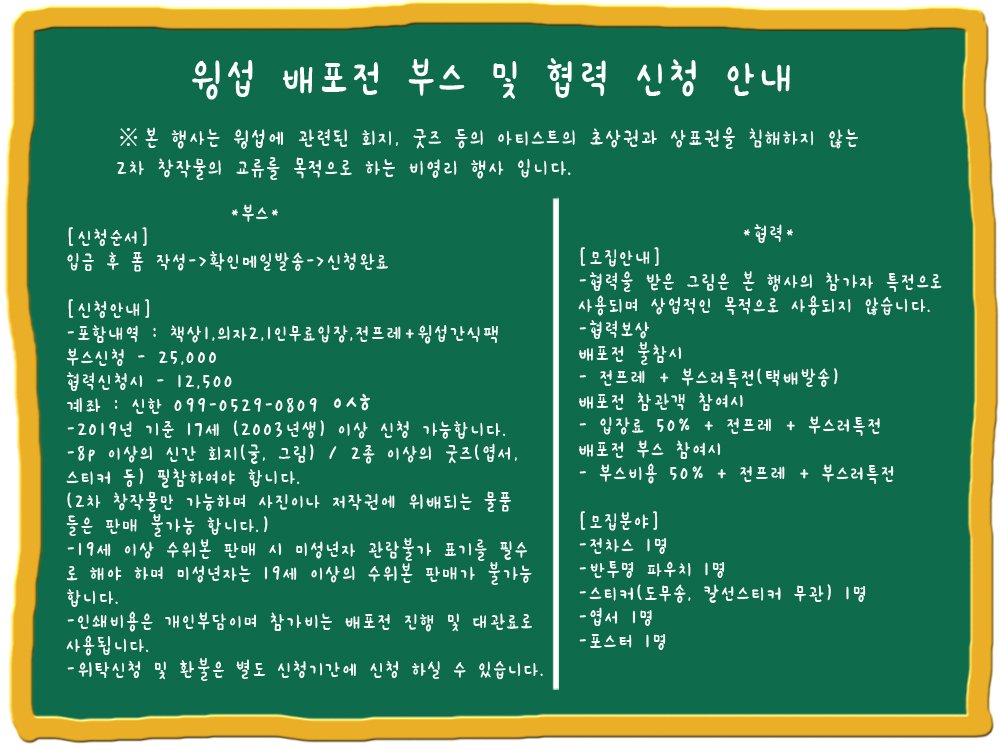 윙섭 배포전 부스 및 협력 신청 안내
※본 행사는 윙섭에 관련된 회지, 굿즈 등의 아티스트의 초상권과 상표권을 침해하지 않는
2차 창작물의 교류를 목적으로 하는 비영리 행사 입니다.
*부스*
[신청순서]
입금 후 폼 작성->확인메일발송->신청완료
[신청안내]
-포함내역 : 책상1,의자2,1인무료입장,전프레+윙섭간식팩
부스신청 - 25,000
협력신청시 - 12,500
계좌 : 신한 099-0529-0809 ㅇㅅㅎ
-2019년 기준 17세 (2003년생) 이상 신청 가능합니다.
-8p 이상의 신간 회지(글, 그림) / 2종 이상의 굿즈(엽서,
스티커 등) 필참하여야 합니다.
(2차 창작물만 가능하며 사진이나 저작권에 위배되는 물품
들은 판매 불가능 합니다.)
-19세 이상 수위본 판매 시 미성년자 관람불가 표기를 필수
로 해야 하며 미성년자는 19세 이상의 수위본 판매가 불가능
합니다.
-인쇄비용은 개인부담이며 참가비는 배포전 진행 및 대관료로
사용됩니다.
-위탁신청 및 환불은 별도 신청기간에 신청 하실 수 있습니다.
*협력*
[모집안내]
-협력을 받은 그림은 본 행사의 참가자 특전으로
사용되며 상업적인 목적으로 사용되지 않습니다.
-협력보상
배포전 불참시
- 전프레 + 부스러특전(택배발송)
배포전 참관객 참여시
- 입장료 50% + 전프레 + 부스러특전
배포전 부스 참여시
- 부스비용 50% + 전프레 + 부스러특전
[모집분야]
-전차스 1명
-반투명 파우치 1명
-스티커(도무송, 칼선스티커 무관) 1명
-엽서 1명
-포스터 1명